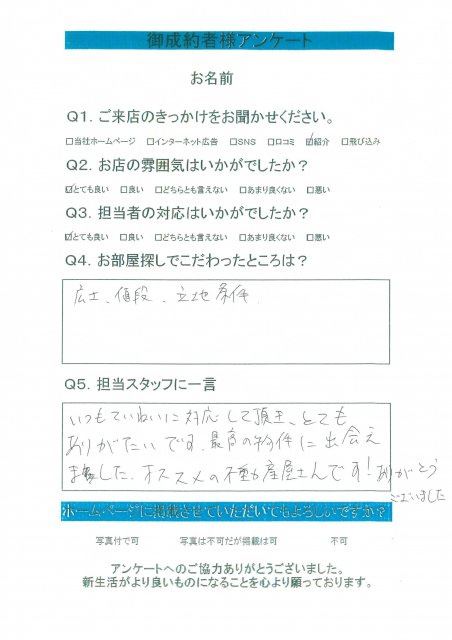 御成約者様アンケート
お名前
Q1. ご来店のきっかけをお聞かせください。
□当社ホームページ □インターネット広告 □SNS □口コミ ☑紹介 □飛び込み
Q2. お店の雰囲気はいかがでしたか？
☑とても良い □良い □どちらとも言えない □あまり良くない □悪い
Q3. 担当者の対応はいかがでしたか？
☑とても良い □良い □どちらとも言えない □あまり良くない □悪い
Q4. お部屋探しでこだわったところは？
広さ、値段、立地条件
Q5. 担当スタッフに一言
いつもていねいに対応して頂き、とても
ありがたいです。最高の物件に出会え
ました。オススメの不動産屋さんです！ありがとう
ございました
ホームページに掲載させていただいてもよろしいですか？
写真付で可 写真は不可だが掲載は可 不可
アンケートへのご協力ありがとうございました。
新生活がより良いものになることを心より願っております。